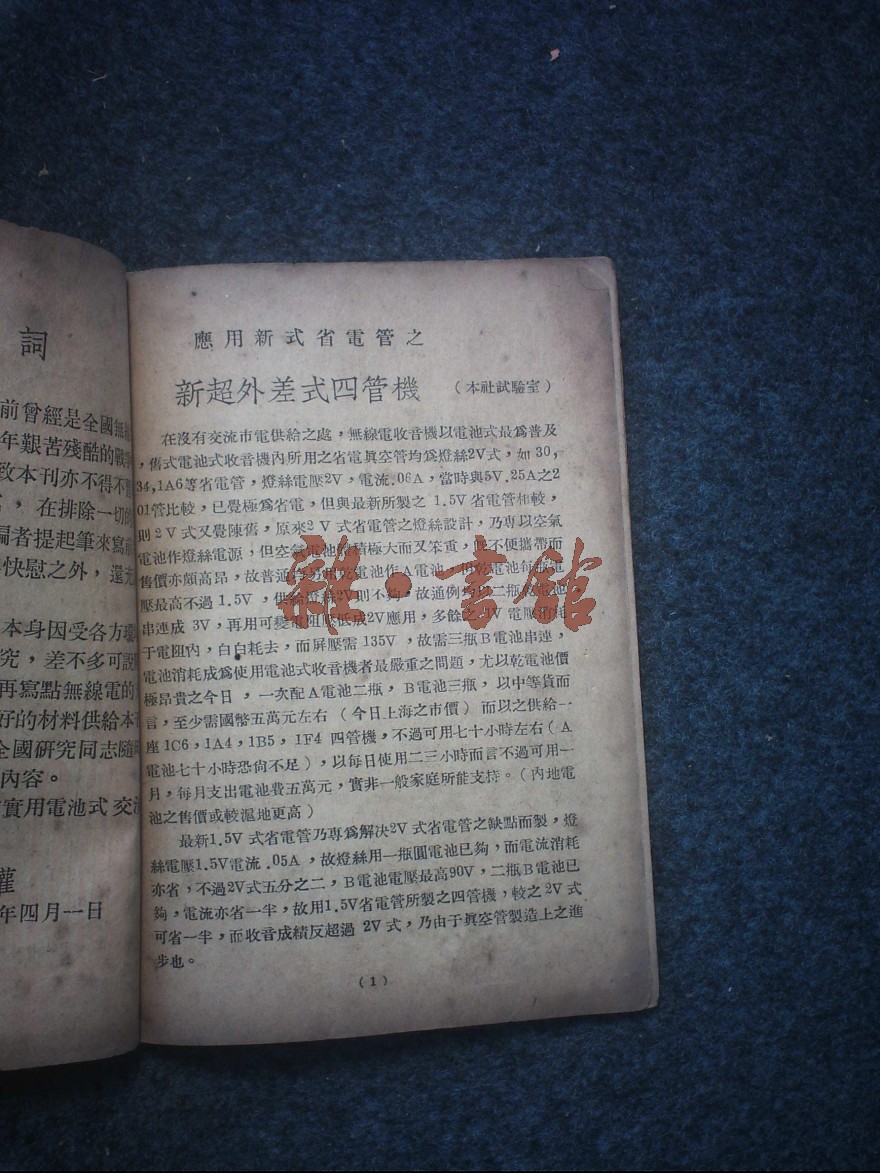 詞
前曾經是全國無
年艱苦殘酷的戰
致本刊亦不得不
，在排除一切的
編者提起筆來寫前
快慰之外，還充
本身因受各方環
究，差不多可說
再寫點無線電的
好的材料供給本
全國研究同志隨
內容。
實用電池式交
年四月一日
應用新式省電管之
新超外差式四管機 （本社試驗室）
在沒有交流市電供給之處，無線電收音機以電池式最爲普及
，舊式電池式收音機內所用之省電眞空管均爲燈絲2V式，如30，
34，1A6等省電管，燈絲電壓2V，電流.06A，當時與5V.25A之2
01管比較，已覺極爲省電，但與最新所製之1.5V省電管相較，
則2V式又覺陳舊，原來2V式省電管之燈絲設計，乃專以空氣
電池作燈絲電源，但空氣電池體積極大而又笨重，極不便攜帶而
售價亦頗高昂，故普通均易用乾電池作A電池，因乾電池每瓶電
壓最高不過1.5V，供給燈絲2V則不夠，故通例均以二瓶乾電池
串連成3V，再用可變電阻壓低成2V應用，多餘之1V電壓消耗
于電阻內，白白耗去，而屏壓需135V，故需三瓶B電池串連，
電池消耗成爲使用電池式收音機者最嚴重之問題，尤以乾電池價
極昂貴之今日，一次配A電池二瓶，B電池三瓶，以中等貨而
言，至少需國幣五萬元左右（今日上海之市價）而以之供給一
座1C6，1A4，1B5，1F4四管機，不過可用七十小時左右（A
電池七十小時恐尚不足），以每日使用二三小時而言不過可用一
月，每月支出電池費五萬元，實非一般家庭所能支持。（內地電
池之售價或較滬地更高）
最新1.5V式省電管乃專爲解決2V式省電管之缺點而製，燈
絲電壓1.5V電流.05A，故燈絲用一瓶圓電池已夠，而電流消耗
亦省，不過2V式五分之二，B電池電壓最高90V，二瓶B電池已
夠，電流亦省一半，故用1.5V省電管所製之四管機，較之2V式
可省一半，而收音成績反超過2V式，乃由于眞空管製造上之進
步也。
（1）
雜·書館